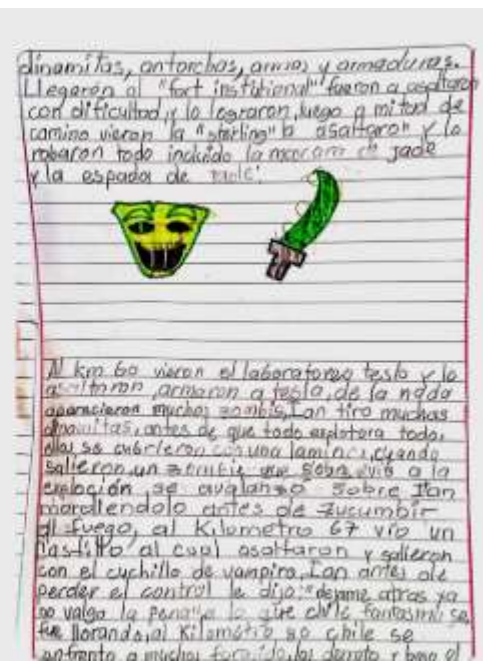 dinamitas, antorchas, armas y armaduras.
Llegaron al "fort institucional" fueron a asaltaron
con dificultad y lo lograron, luego a mitad de
camino vieron la "sterling" la asaltaron y lo
robaron todo incluido la mascara de jade
y la espada de jade:
Al km 60 vieron el laboratorio tesla y lo
asaltaron, armaron a tesla, de la nada
aparecieron muchos zombis, Ian tiro muchas
dinamitas, antes de que todo explotara todo,
ellos se cubrieron con una lamina, cuando
salieron, un zombie que sobrevivio a la
exploción se avalanzó sobre Ian
mordiendolo antes de zucumbir
al fuego, al Kilometro 67 vio un
castillo al cual asaltaron y salieron
con el cuchillo de vampiro, Ian antes de
perder el control le dijo: "dejame atras ya
no valgo la pena" a lo que chile fantasma se
fue llorando, al Kilometro 80 chile se
enfrento a muchos forajido, los derroto y bajo el